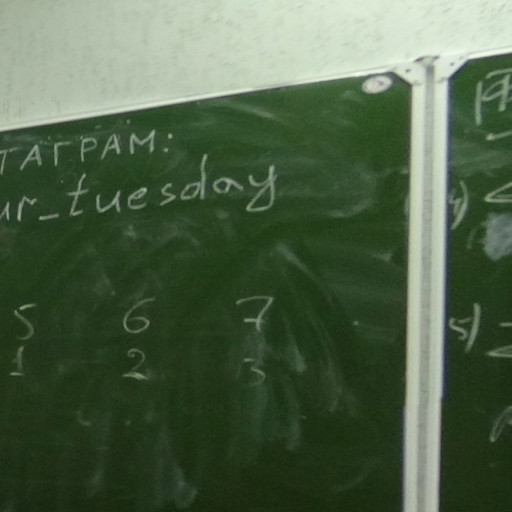 ТАГРАМ:
ur_tuesday
5 6 7
1 2 3
4)
5)